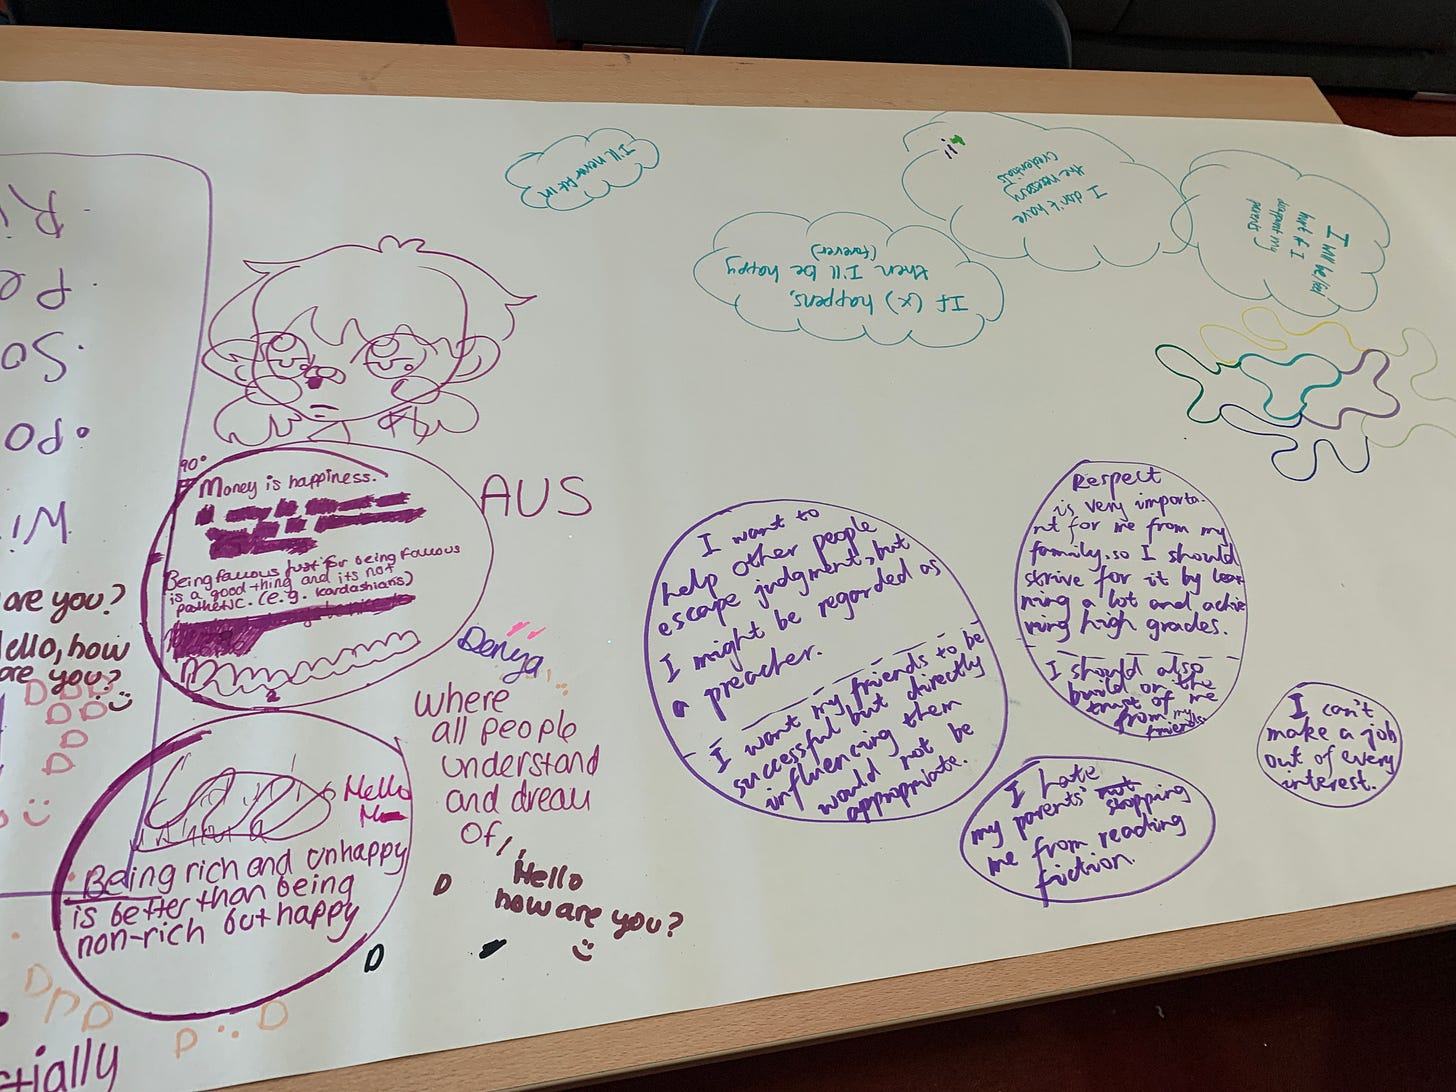 I'll never fit in
I don't have
the necessary
credentials
I will be/feel
hurt if I
disappoint my
parents
If (x) happens,
then I'll be happy
(forever)
Ri
Pe
So
Po
Wi
90°
Money is happiness.
Being famous just for being famous
is a good thing and its not
pathetic. (e.g. kardashians)
2
AUS
Denya
where
all people
understand
and dream
of,
are you?
Hello, how
are you?
D D D
D D
D
D
Hello
Being rich and unhappy
is better than being
non-rich but happy
Hello
how are you?
D
D
D D D
D
D
tially
I want to
help other people
escape judgments, but
I might be regarded as
a preacher.
I want my friends to be
successful but directly
influencing them
would not be
appropriate.
Respect
is very importa-
nt for me from my
family. so I should
strive for it by lear
ning a lot and achie
ving high grades.
I should also
build on the
trust of me
from my
friends
I hate
my parents' stopping
me from reading
fiction.
I can't
make a job
out of every
interest.